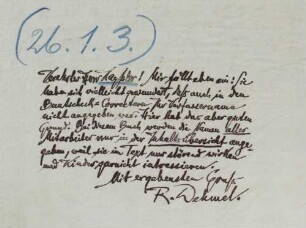 (26.1.3.)
Verehrter Herr Kayßler! Mir fällt eben ein: Sie
haben sich vielleicht gewundert, daß auch in den
Correcturen Ihr Verfassername
nicht angegeben war. Hier hat das aber guten
Grund. Bei diesem Buch werden die Namen aller
Mitarbeiter nur in der Inhaltsübersicht ange-
geben, weil sie im Text nur störend wirken
und Kinder garnicht interessieren.
Mit ergebenstem Gruß
R. Dehmel.